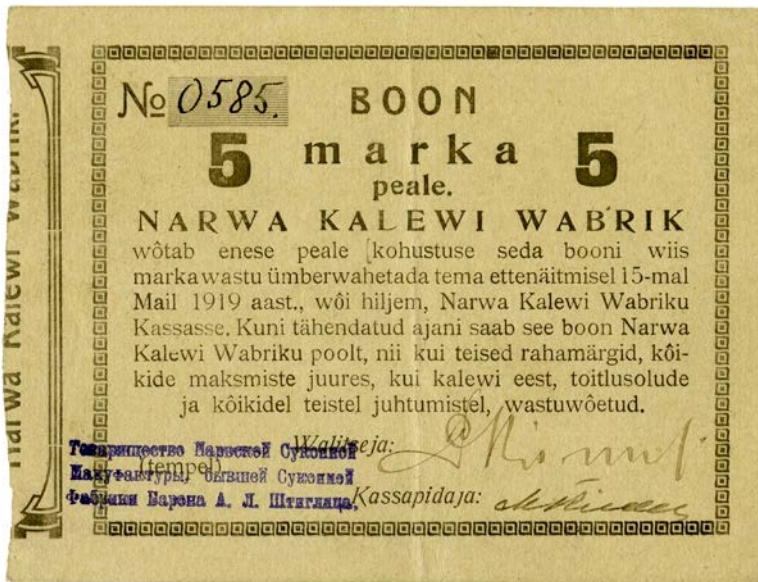 Narwa Kalewi Wabriku
№ 0585. BOON
5 marka 5
peale.
NARWA KALEWI WABRIK
wõtab enese peale [kohustuse seda booni wiis
marka wastu ümberwahetada tema ettenäitmisel 15-mal
Mail 1919 aast., wõi hiljem, Narwa Kalewi Wabriku
Kassasse. Kuni tähendatud ajani saab see boon Narwa
Kalewi Wabriku poolt, nii kui teised rahamärgid, kõi-
kide maksmiste juures, kui kalewi eest, toitlusolude
ja kõikidel teistel juhtumistel, wastuwõetud.
Walitseja:
(tempel)
Товарищество Нарвской Суконной
Мануфактуры, бывшей Суконной
Фабрики Барона А. Л. Штиглица,
Kassapidaja: